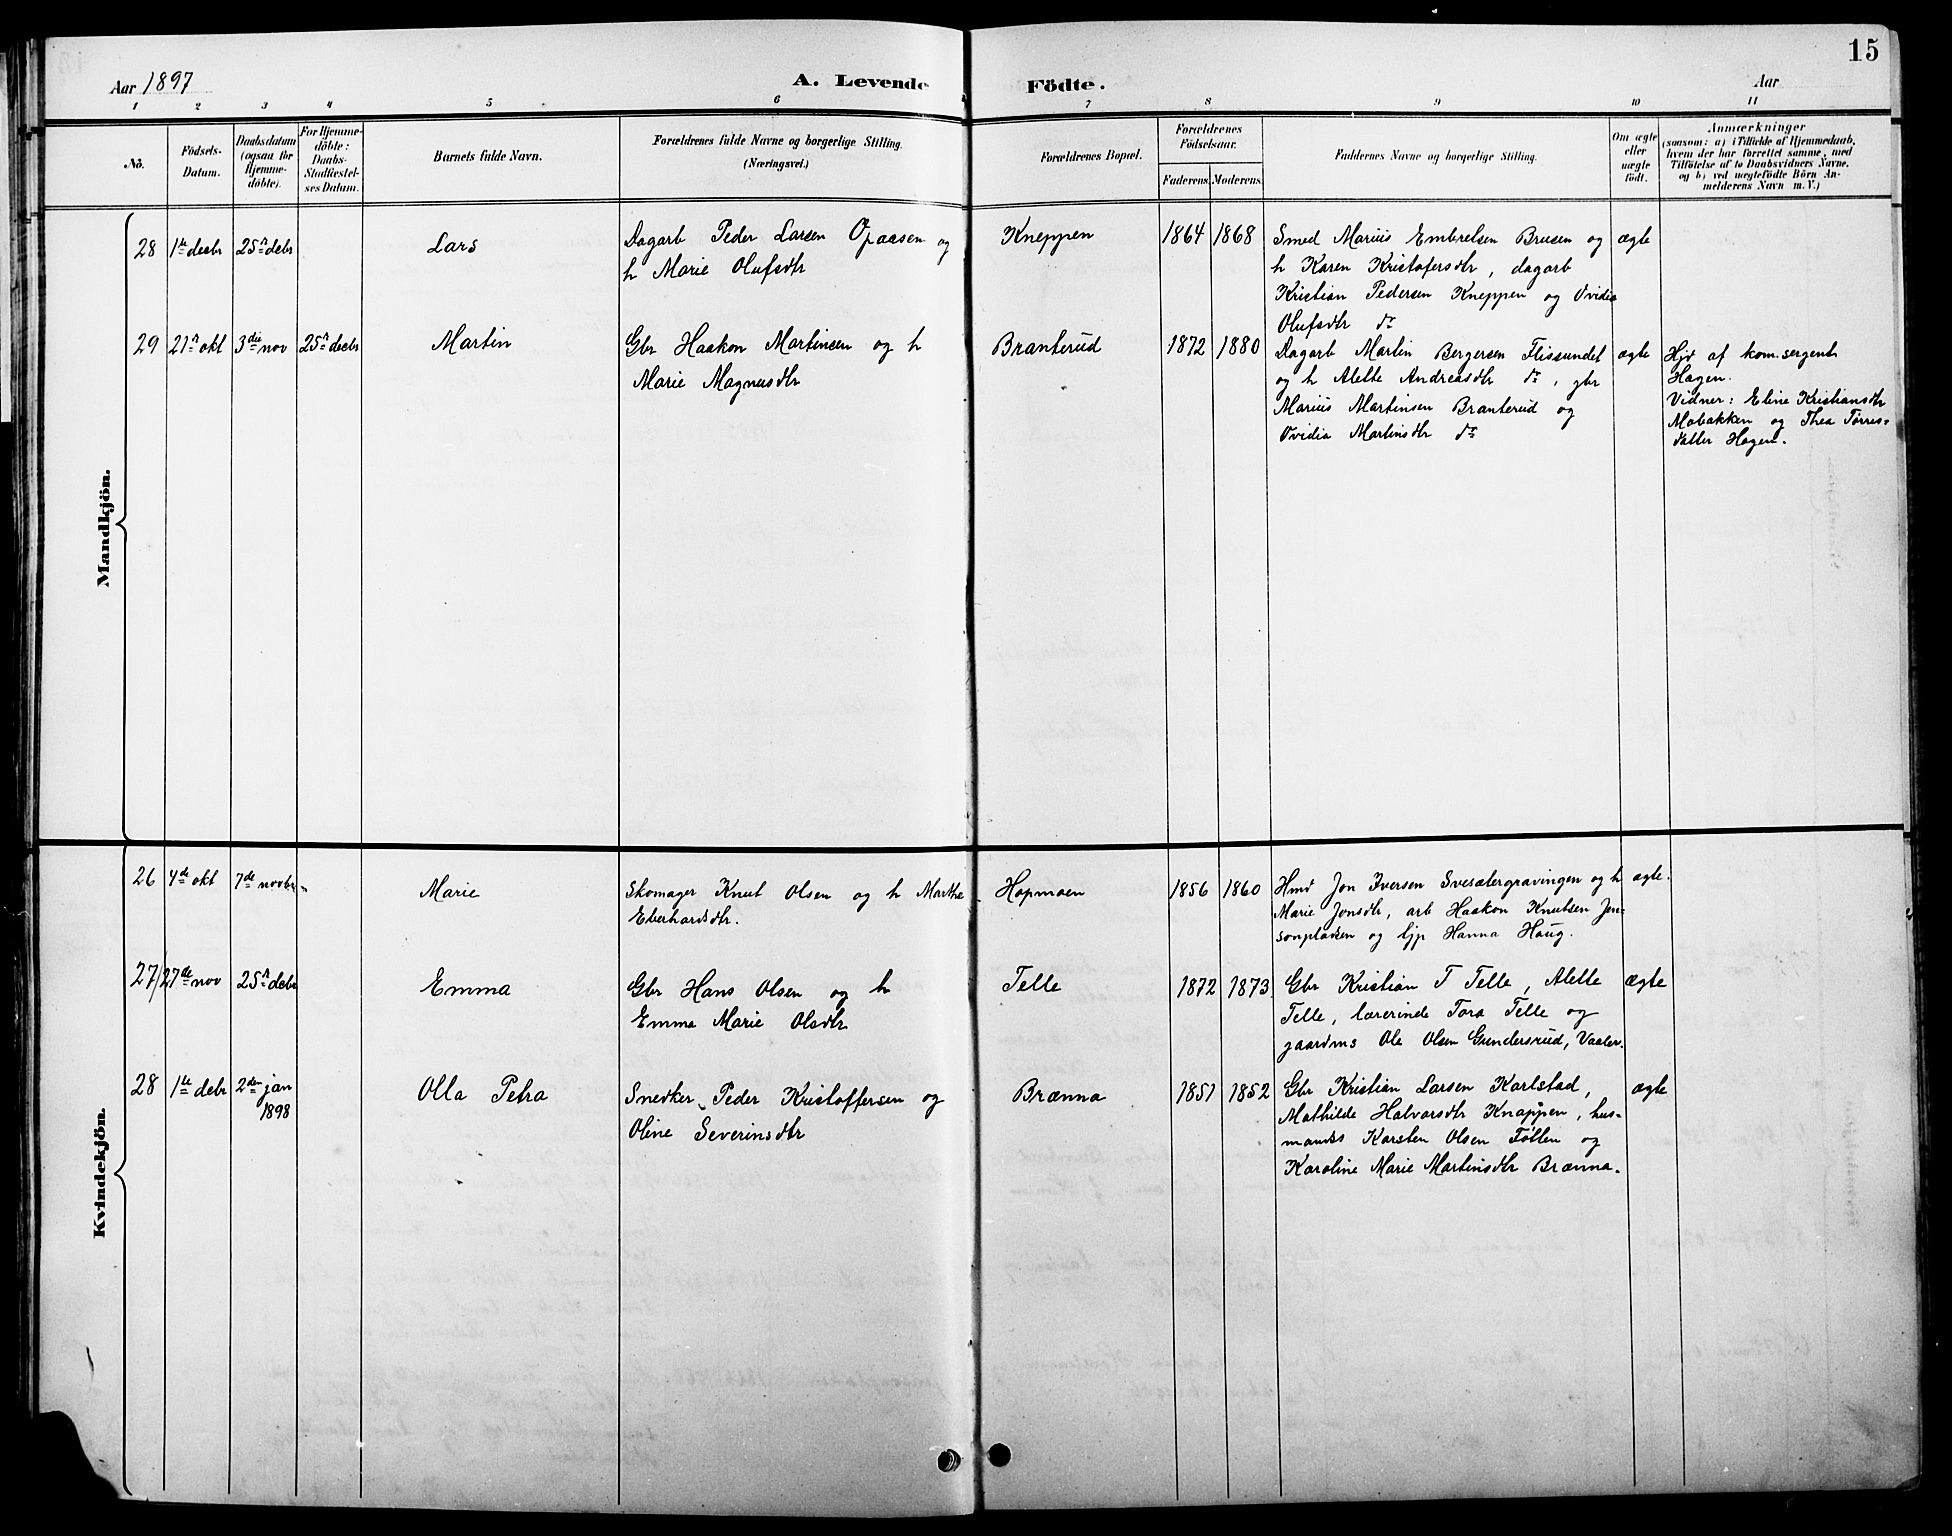 15
Aar 1897 A. Levende Födte. Aar
1 2 3 4 5 6 7 8 9 10 11
No.
Födsels-
Datum.
Daabsdatum
(ogsaa for
Hjemme-
döbte).
For Hjemme-
döbte:
Daabs-
Stadfæstel-
ses Datum.
Barnets fulde Navn.
Forældrenes fulde Navne og borgerlige Stilling.
(Næringsvei.)
Forældrenes Bopæl.
Forældrenes
Födselsaar.
Faderens. Moderens.
Faddernes Navne og borgerlige Stilling.
Om ægte
eller
uægte
födt.
Anmærkninger
(saasom: a) i Tilfælde af Hjemmedaab,
hvem der har forrettet samme, med
Tilföielse af to Daabsvidners Navne,
og b) ved uægtefödte Börn An-
melderens Navn m. V.)
Mandkjön.
28 1ste decbr 25de debr Lars
Dagarb Peder Larsen Opaasen og
h Marie Olufsdtr
Kneppen 1864 1868
Smed Marius Embretsen Brusen og
h Karen Kristofersdtr, dagarb
Kristian Pedersen Kneppen og Ovidia
Olufsdtr do
ægte
29 21de okt 3die nov 25de decbr Martin
Gbr Haakon Martinsen og h
Marie Magnusdtr
Branterud 1872 1880
Dagarb Martin Bergersen Flissundet
og h Alette Andreasdtr do, gbr
Marius Martinsen Branterud og
Ovidia Martinsdtr do
ægte
Hjd af kom.sergent
Hagen.
Vidner: Eline Kristiansdtr
Mobakken og Thea Torres-
datter Hagen.
Kvindekjön.
26 4de okt 7de novbr Marie
Skomager Knut Olsen og h Marthe
Eberhardsdtr.
Hopmoen 1856 1860
Hmd Jon Iversen Svesætergravingen og h
Marie Jonsdtr, arb Haakon Knutsen Jon-
sonpladsen og tjp Hanna Haug.
ægte.
27 27de nov 25de debr Emma
Gbr Hans Olsen og h
Emma Marie Olsdtr
Telle 1872 1873
Gbr Kristian T Telle, Alette
Telle, lærerinde Tora Telle og
gaardms Ole Olsen Gundersrud, Vaaler.
ægte
28 1ste debr 2den jan
1898
Olla Petra
Snedker Peder Kristoffersen og
Oline Severinsdtr
Brænna 1851 1852
Gbr Kristian Larsen Karlstad,
Mathilde Halvorsdtr Knappen, hus-
mands Karsten Olsen Follen og
Karoline Marie Martinsdtr Brænna.
ægte